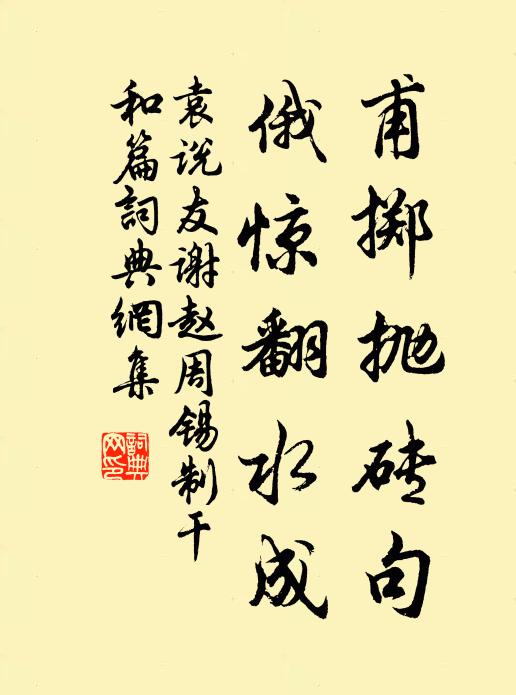 甫掷抛砖句
俄惊翻水成
袁说友谢赵周锡制干
和篇詞典網集
詞典网印